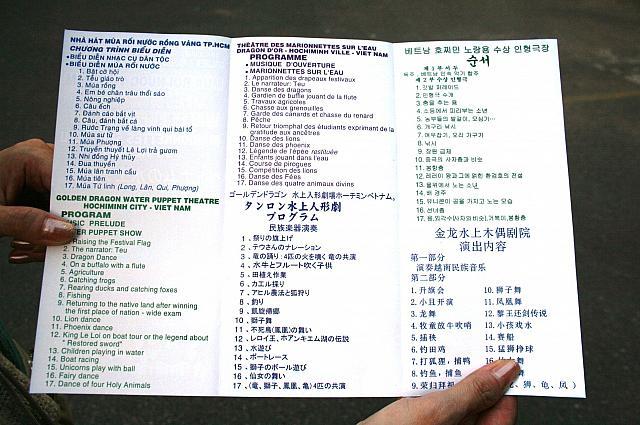 NHÀ HÁT MÚA RỐI NƯỚC RỒNG VÀNG TP.HCM
CHƯƠNG TRÌNH BIỂU DIỄN
• BIỂU DIỄN NHẠC CỤ DÂN TỘC
• BIỂU DIỄN MÚA RỐI NƯỚC
1. Bật cờ hội
2. Tễu giáo trò
3. Múa rồng
4. Em bé chăn trâu thổi sáo
5. Nông nghiệp
6. Câu ếch
7. Đánh cáo bắt vịt
8. Câu, đánh bắt cá
9. Rước Trạng về làng vinh qui bái tổ
10. Múa sư tử
11. Múa Phượng
12. Truyền thuyết Lê Lợi trả gươm
13. Nhi đồng Hý thủy
14. Đua thuyền
15. Múa lân tranh cầu
16. Múa tiên
17. Múa Tứ linh (Long, Lân, Qui, Phượng)
GOLDEN DRAGON WATER PUPPET THEATRE
HOCHIMINH CITY - VIET NAM
PROGRAM
SIC PRELUDE
ER PUPPET SHOW
Raising the Festival Flag
2. The narrator: Teu
3. Dragon Dance
4. On a buffalo with a flute
5. Agriculture
6. Catching frogs
7. Rearing ducks and catching foxes
8. Fishing
9. Returning to the native land after winning
the first place of nation - wide exam
10. Lion dance
11. Phoenix dance
12. King Le Loi on boat tour or the legend about
" Restored sword"
13. Children playing in water
14. Boat racing
15. Unicorns play with ball
16. Fairy dance
17. Dance of four Holy Animals
THÉÂTRE DES MARIONNETTES SUR L'EAU
DRAGON D'OR - HOCHIMINH VILLE - VIET NAM
PROGRAMME
• MUSIQUE D'OUVERTURE
• MARIONNETTES SUR L'EAU
1. Apparition des drapeaux festivaux
2. Le narrateur: Teu
3. Danse des dragons
4. Gardien de buffle jouant de la flute
5. Travaux agricoles
6. Chasse aux grenouilles
7. Garde des canards et chasse du renard
8. Pêche
9. Retour triomphal des étudiants exprimant de la
gratitude aux ancêtres
10. Danse des lions
11. Danse des phoenix
12. Légende de l'épee restituée
13. Enfants jouant dans l'eau
14. Course de pirogues
15. Compétition des lions
16. Danse des Fées
17. Danse des quatre animaux divins
ゴールデンドラゴン 水上人形劇場ホーチミンベトナム。
タンロン水上人形劇
プログラム
民族楽器演奏
1、祭りの旗上げ
2、テウさんのナレーション
3、竜の踊り:4匹の火を噴く竜の共演
4、水牛とフルート吹く子供
5、田植え作業
6、カエル採り
7、アヒル農法と狐狩り
8、釣り
9、凱旋帰郷
10、獅子舞
11、不死鳥(鳳凰)の舞い
12、レロイ王、ホアンキエム湖の伝説
13、水遊び
14、ボートレース
15、獅子のボール遊び
16、仙女の舞い
17、(竜、獅子、鳳凰、亀)4匹の共演
베트남 호찌민 노랑용 수상 인형극장
순서
제 1 부 서 두
제 2 부 수 상 인 형 극
1. 깃발 퍼레이드
2. 인형극 소개
3. 춤을 추는 용
6. 개구리 낚시
8. 낚시
9. 장원 급제
11. 봉황춤
13. 물위에서 노는 소년
14. 배 경주
16. 선녀춤
金龙水上木偶剧院
演出内容
第一部分
演奏越南民族音乐
第二部分
1. 升旗会
2. 小丑开演
3. 龙舞
4. 牧童放牛吹哨
5. 插秧
6. 钓田鸡
7. 打狐狸，捕鸭
8. 钓鱼，捕鱼
9. 荣归拜祖
10. 狮子舞
11. 凤凰舞
12. 黎王还剑传说
13. 小孩戏水
14. 赛船
15. 猛狮挣球
舞
、狮、龟、凤）